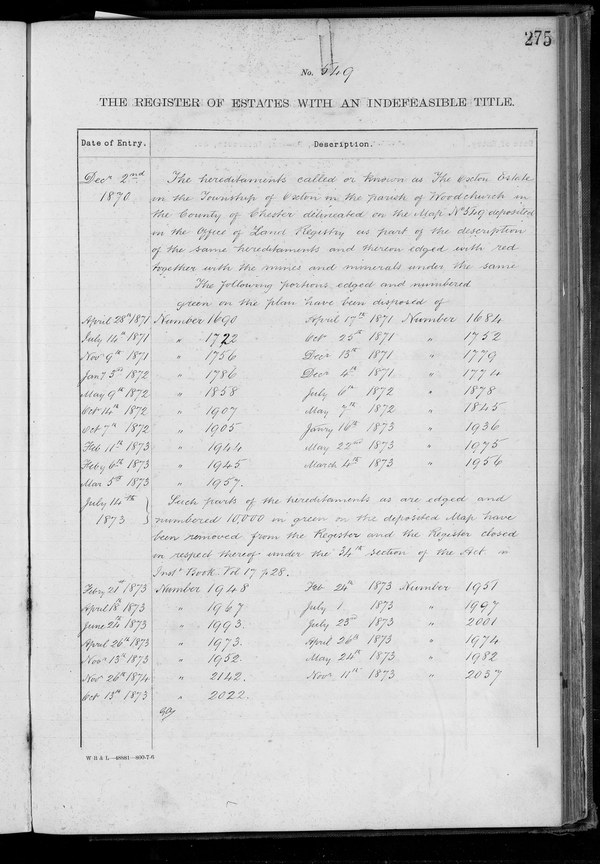 275
No. 549
THE REGISTER OF ESTATES WITH AN INDEFEASIBLE TITLE.
Date of Entry. Description.
Decr 2nd The hereditaments called or known as The Oxton Estate
1870 in the Township of Oxton in the parish of Woodchurch in
the County of Chester delineated on the Map No 549 deposited
in the Office of Land Registry as part of the description
of the same hereditaments and thereon edged with red
together with the mines and minerals under the same
The following portions edged and numbered
green on the plan have been disposed of
April 28th 1871 Number 1690 April 17th 1871 Number 1684
July 14th 1871 " 1722 Oct 25th 1871 " 1752
Novr 9th 1871 " 1756 Decr 13th 1871 " 1779
Jany 3rd 1872 " 1786 Decr 4th 1871 " 1774
May 9th 1872 " 1858 July 6th 1872 " 1878
Oct 14th 1872 " 1907 May 7th 1872 " 1845
Oct 7th 1872 " 1905 Janry 16th 1873 " 1936
Feb 11th 1873 " 1944 May 22nd 1873 " 1975
Feby 6th 1873 " 1945 March 4th 1873 " 1956
Mar 5th 1873 " 1957.
July 14th } Such parts of the hereditaments as are edged and
1873 } numbered 10,000 in green on the deposited Map have
been removed from the Register and the Register closed
in respect thereof under the 34th section of the Act in
Inst Book Vol 17 p 28.
Feby 21st 1873 Number 1948 Feb 24th 1873 Number 1951
April 18th 1873 " 1967 July 1 1873 " 1997
June 24th 1873 " 1993 July 23rd 1873 " 2001
April 26th 1873 " 1973. April 26th 1873 " 1974
Novr 13th 1873 " 1952. May 24th 1873 " 1982
Novr 26th 1874 " 2142. Novr 11th 1873 " 2037
Oct 13th 1873 " 2022.
W B & L—46981—800-7-6